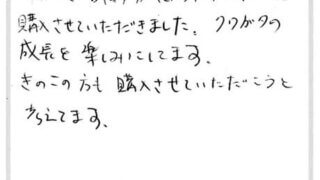 購入させていただきました。クワガタの
成長を楽しみにしてます。
きのこの方も購入させていただこうと
考えてます。